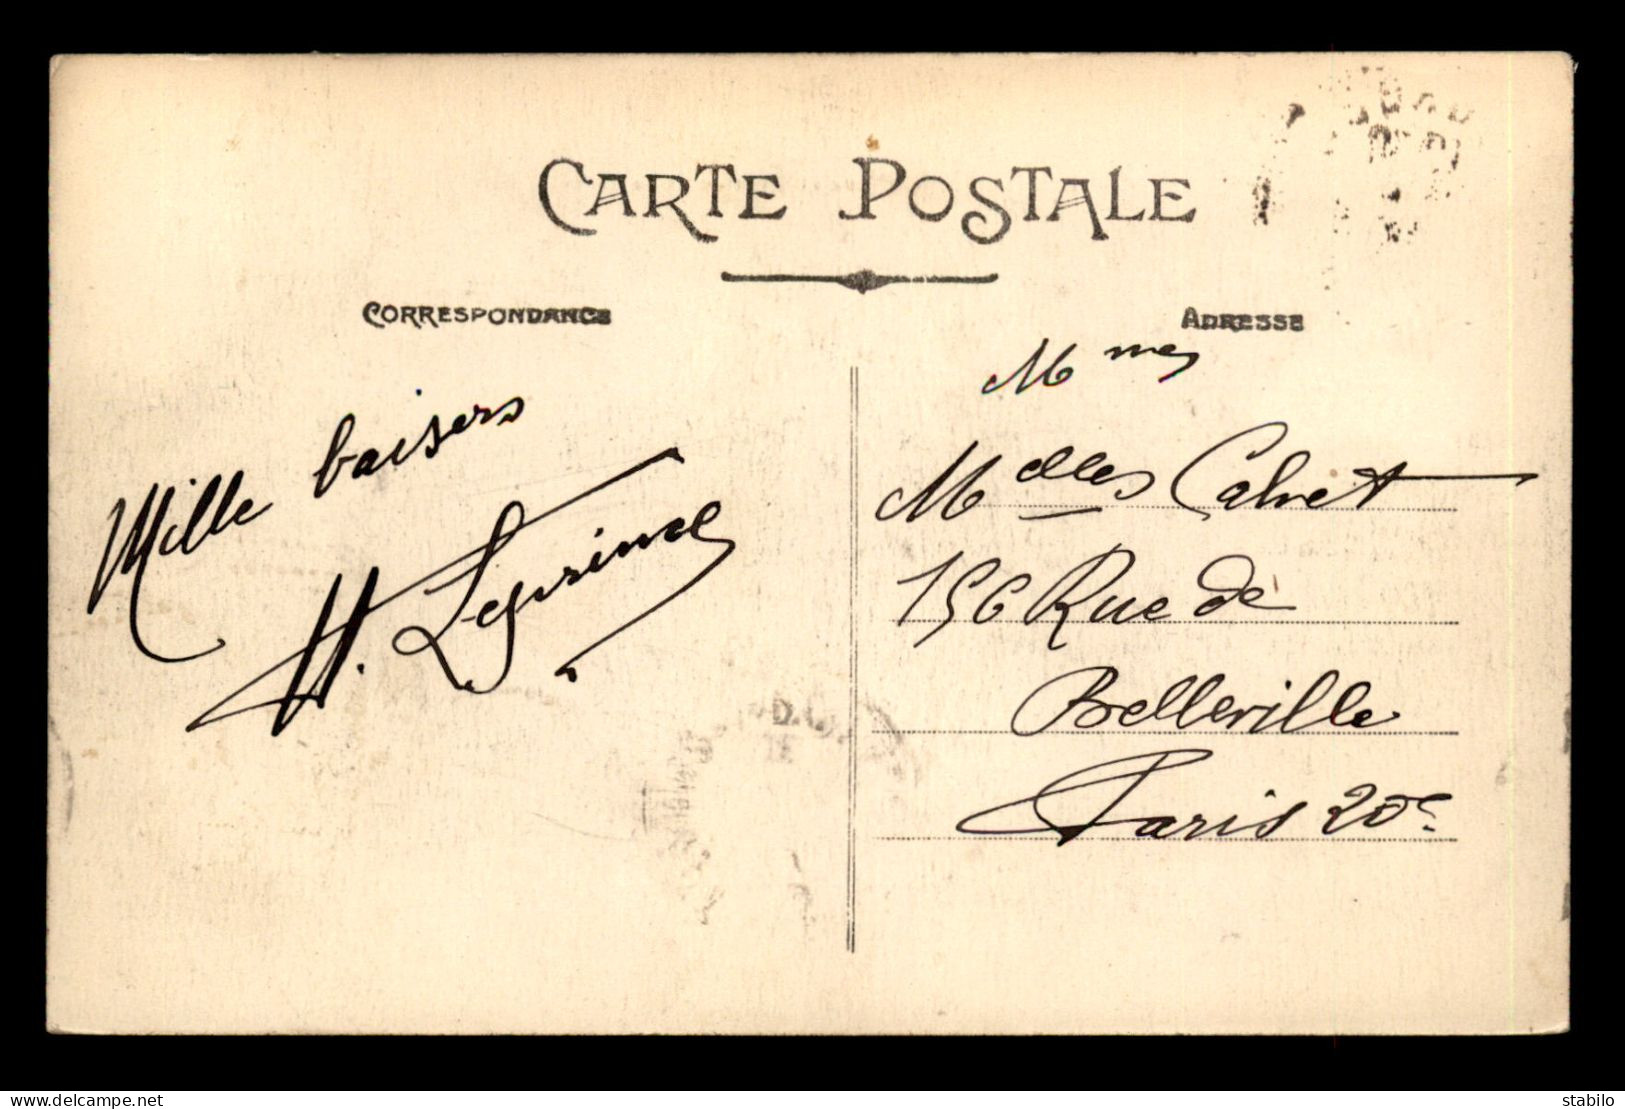 CARTE POSTALE
CORRESPONDANCE
ADRESSE
Mille baisers
H. Leprince
Mmes
Mdlles Calvet
156 Rue de
Belleville
Paris 20e
www.delcampe.net
stabilo